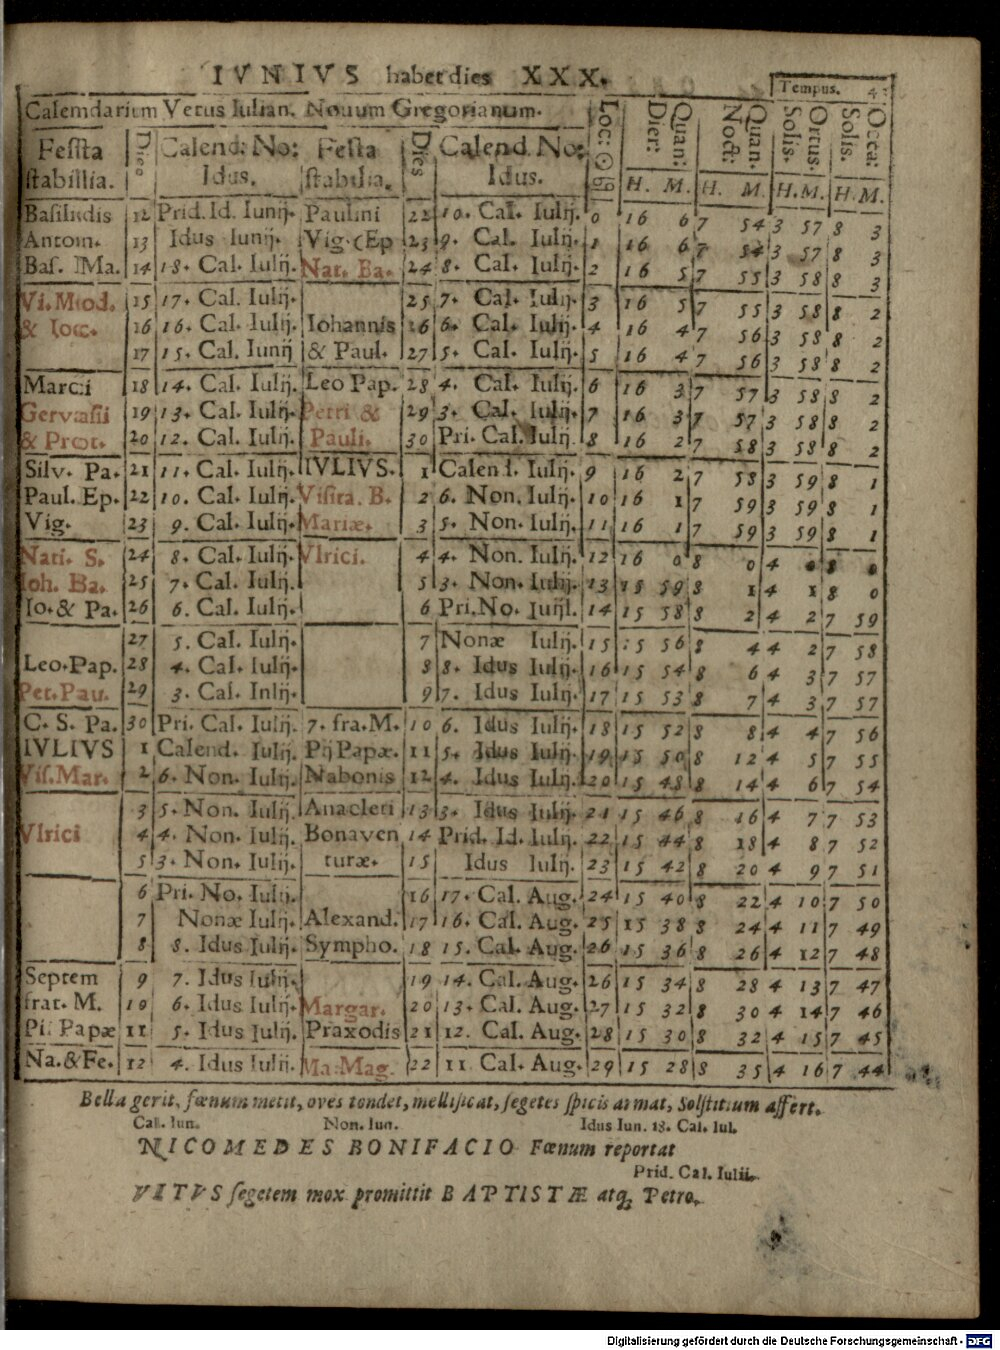 IVNIVS habet dies XXX.
Tempus. 43
Calemdarium Vetus Iulian. Nouum Gregorianum.
Fessta stabillia. Dies Calend: No: Idus. Festa stabilia. Dies Calend. No: Idus. Loc: ☉ ♋ Quan: Dier: Quan. Noct: Ortus Solis. Occa: Solis.
H. M. H. M. H. M. H. M.
Basilidis 12 Prid. Id. Iunij. Paulini 22 10. Cal. Iulij. 0 16 6 7 54 3 57 8 3
Antom. 13 Idus Iunij. Vig. Ep 23 9. Cal. Iulij. 1 16 6 7 54 3 57 8 3
Bas. Ma. 14 18. Cal. Iulij. Nat. Ba. 24 8. Cal. Iulij. 2 16 5 7 55 3 58 8 3
Vi. Mod. 15 17. Cal. Iulij. 25 7. Cal. Iulij. 3 16 5 7 55 3 58 8 2
& 16 16. Cal. Iulij. Iohannis 26 6. Cal. Iulij. 4 16 4 7 56 3 58 8 2
17 15. Cal. Iunij & Paul. 27 5. Cal. Iulij. 5 16 4 7 56 3 58 8 2
Marci 18 14. Cal. Iulij. Leo Pap. 28 4. Cal. Iulij. 6 16 3 7 57 3 58 8 2
Gervasii 19 13. Cal. Iulij. Petri & 29 3. Cal. Iulij. 7 16 3 7 57 3 58 8 2
& Prot. 20 12. Cal. Iulij. Pauli. 30 Pri. Cal. Iulij. 8 16 2 7 58 3 58 8 2
Silv. Pa. 21 11. Cal. Iulij. IVLIVS. 1 Calend. Iulij. 9 16 2 7 58 3 59 8 1
Paul. Ep. 22 10. Cal. Iulij. Visita. B. 2 6. Non. Iulij. 10 16 1 7 59 3 59 8 1
Vig. 23 9. Cal. Iulij. Mariæ. 3 5. Non. Iulij. 11 16 1 7 59 3 59 8 1
Nati. S. 24 8. Cal. Iulij. Vlrici. 4 4. Non. Iulij. 12 16 0 8 0 4 0 8 0
Ioh. Ba. 25 7. Cal. Iulij. 5 3. Non. Iulij. 13 15 59 8 1 4 1 8 0
Io. & Pa. 26 6. Cal. Iulij. 6 Pri. No. Iulij. 14 15 58 8 2 4 2 7 59
27 5. Cal. Iulij. 7 Nonæ Iulij. 15 15 56 8 4 4 2 7 58
Leo. Pap. 28 4. Cal. Iulij. 8 8. Idus Iulij. 16 15 54 8 6 4 3 7 57
Pet. Pau. 29 3. Cal. Inlij. 9 7. Idus Iulij. 17 15 53 8 7 4 3 7 57
C. S. Pa. 30 Pri. Cal. Iulij. 7. fra. M. 10 6. Idus Iulij. 18 15 52 8 8 4 4 7 56
IVLIVS 1 Calend. Iulij. Pij Papæ. 11 5. Idus Iulij. 19 15 50 8 12 4 5 7 55
Vis. Mar. 2 6. Non. Iulij. Nabonis 12 4. Idus Iulij. 20 15 48 8 14 4 6 7 54
3 5. Non. Iulij. Anacleti 13 3. Idus Iulij. 21 15 46 8 16 4 7 7 53
Vlrici 4 4. Non. Iulij. Bonaven 14 Prid. Id. Iulij. 22 15 44 8 18 4 8 7 52
5 3. Non. Iulij. turæ. 15 Idus Iulij. 23 15 42 8 20 4 9 7 51
6 Pri. No. Iulij. 16 17. Cal. Aug. 24 15 40 8 22 4 10 7 50
7 Nonæ Iulij. Alexand. 17 16. Cal. Aug. 25 15 38 8 24 4 11 7 49
8 8. Idus Iulij. Sympho. 18 15. Cal. Aug. 26 15 36 8 26 4 12 7 48
Septem 9 7. Idus Iulij. 19 14. Cal. Aug. 26 15 34 8 28 4 13 7 47
frat. M. 10 6. Idus Iulij. Margar. 20 13. Cal. Aug. 27 15 32 8 30 4 14 7 46
Pij. Papæ 11 5. Idus Iulij. Praxodis 21 12. Cal. Aug. 28 15 30 8 32 4 15 7 45
Na. & Fe. 12 4. Idus Iulij. Ma: Mag. 22 11 Cal. Aug. 29 15 28 8 35 4 16 7 44
Bella gerit, fœnum metit, oves tondet, mellificat, segetes spicis armat, Solstitium affert.
Cal. Iun. Non. Iun. Idus Iun. 18. Cal. Iul.
NICOMEDES BONIFACIO Fœnum reportat
Prid. Cal. Iulii.
VITVS segetem mox promittit BAPTISTÆ atq; Petro.
Digitalisierung gefördert durch die Deutsche Forschungsgemeinschaft - DFG